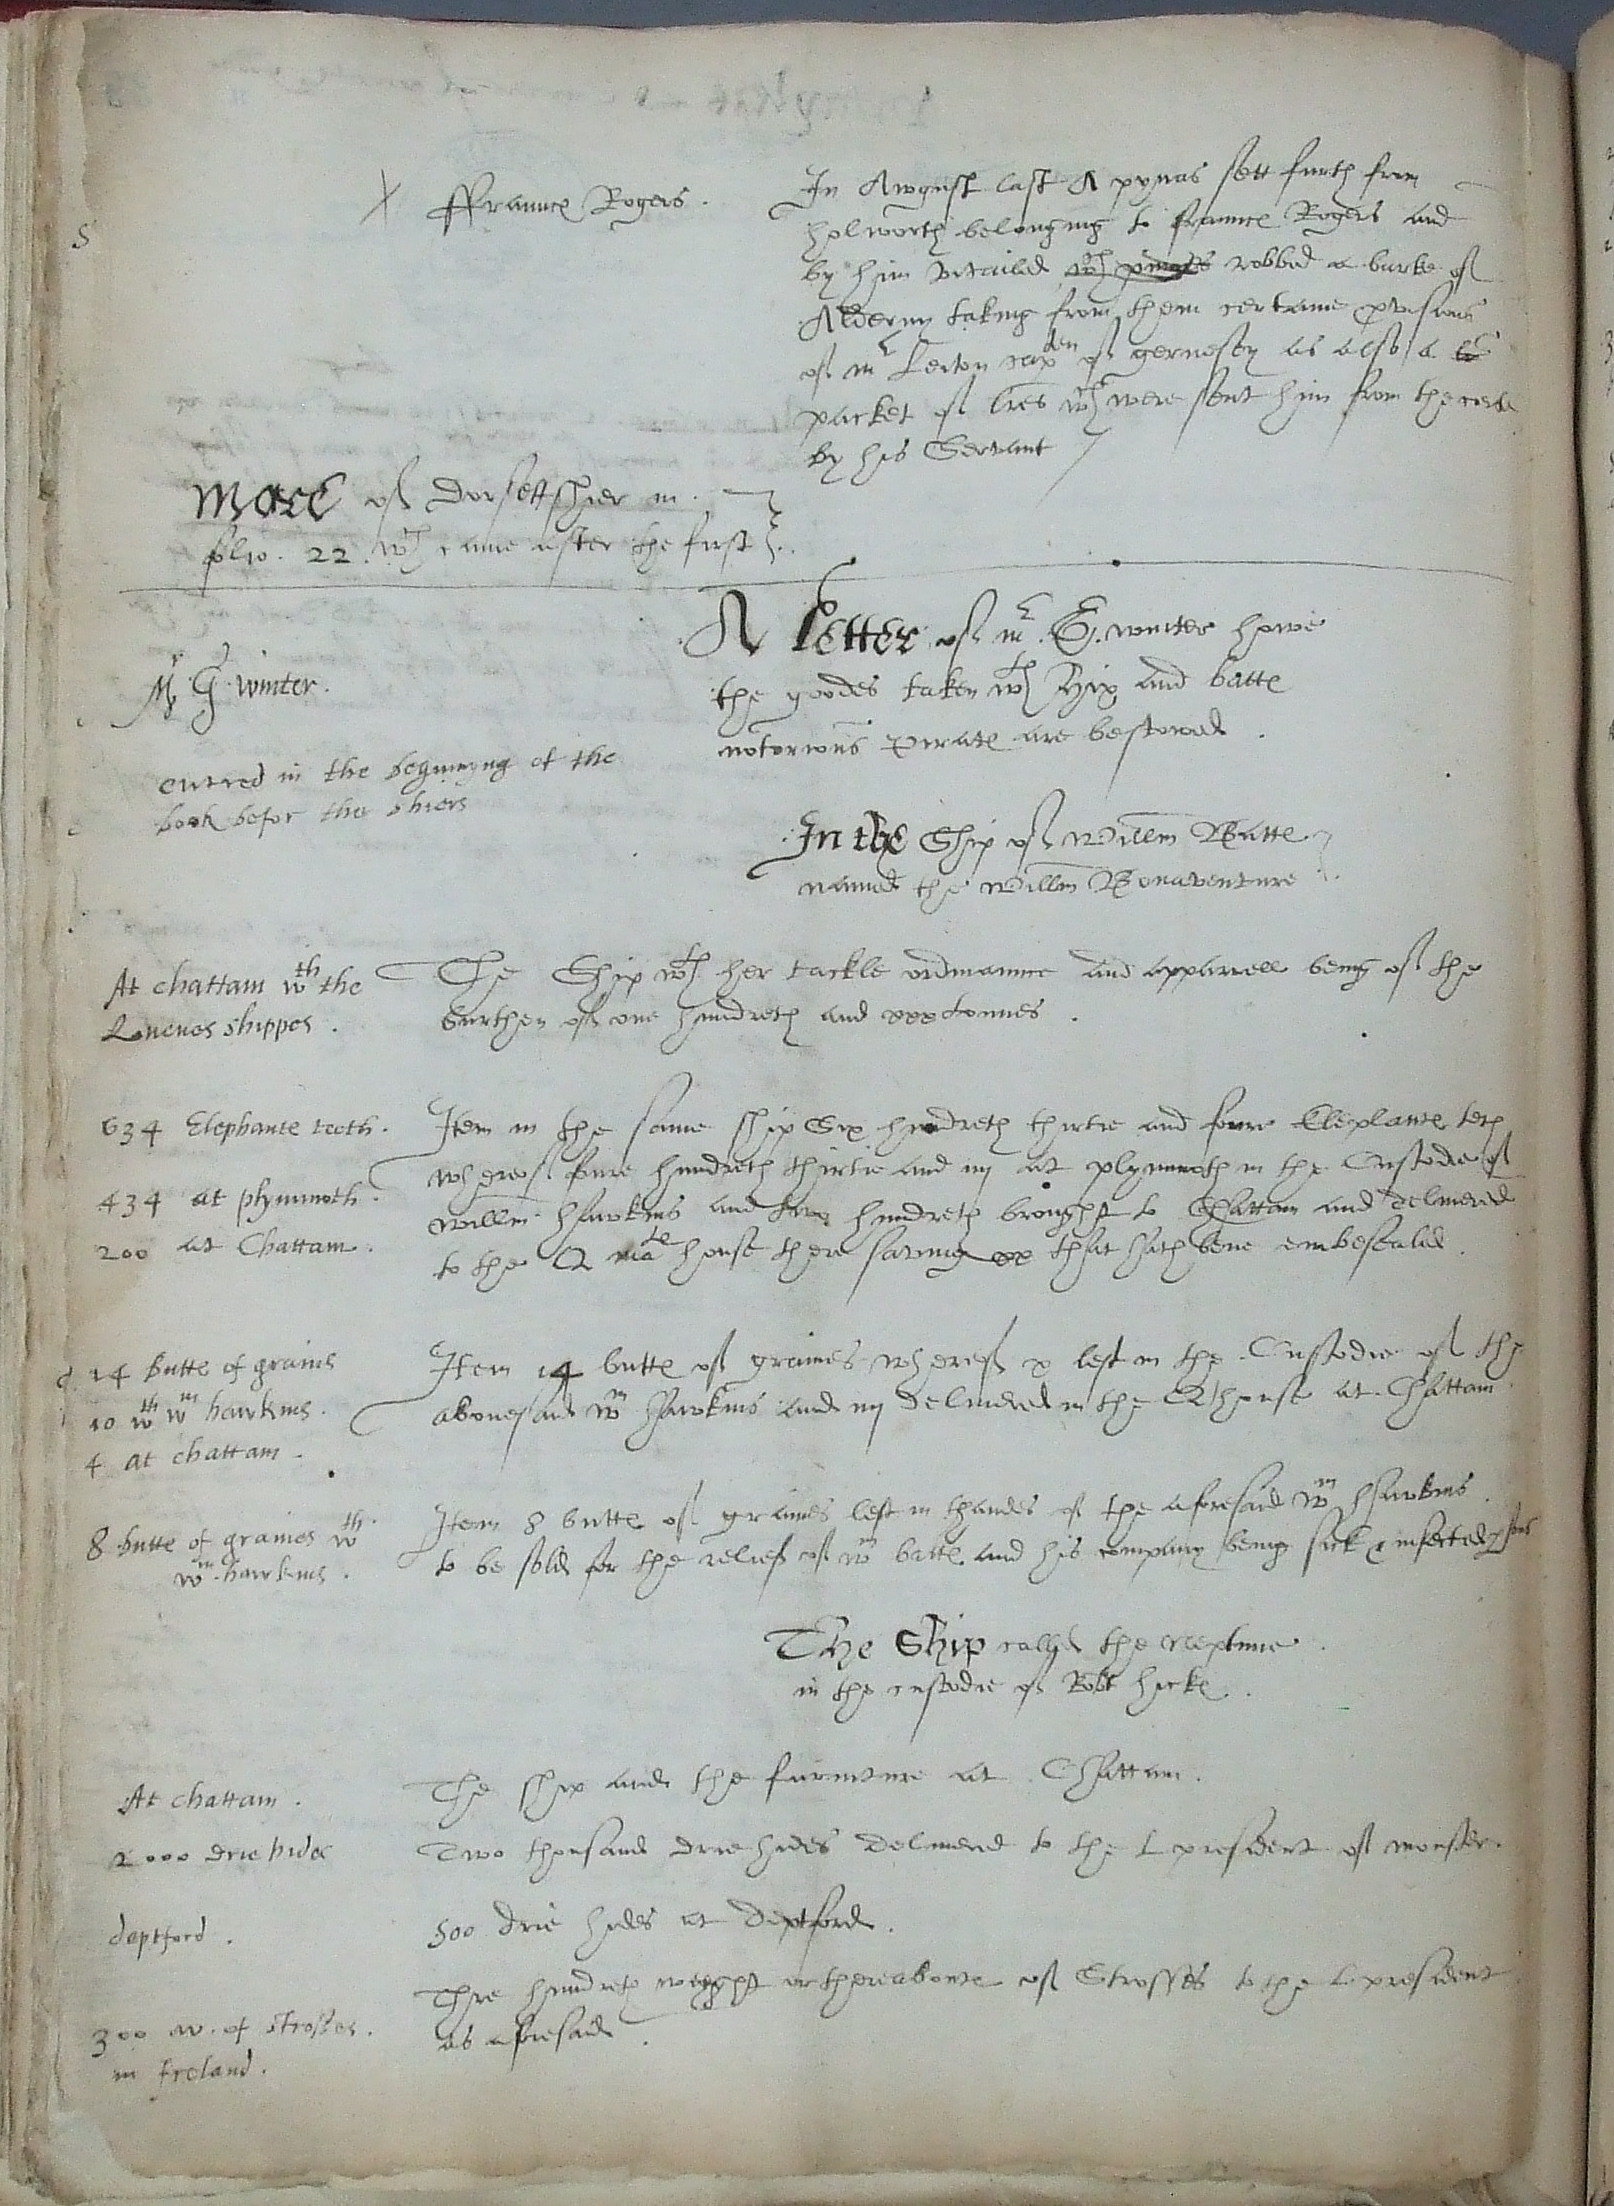 X ffraunce Rogers .
In Awgust last A pynas sett furth from
holworth belonging to fraunce Rogers and
by him vitailed wch robbed a barke of
Alderny taking from them certaine pvisions
of mr Leiton capten of gernesey as also a
packet of lres wch were sent him from the corte
by his Servant
More of Dorsettshier in .
folio . 22 . wch came after the first .
A Letter of mr . G. winter howe
the goodes taken wth Hix and batte
notorious pirate are bestowed .
Mr G. winter .
entred in the beginnyng of the
book befor the shiers
In the Ship of Willm Batte
named the Willm Bonaventure
At chattam wth the
Quenes shippes .
The Ship wth her tackle ordinaunce and apparrell being of the
burthen of one hundreth and xxx tonnes .
634 Elephante teeth .
434 at plymmoth .
200 at Chattam .
Item in the same ship Six hundreth thirtie and foure Elephante teth
whereof foure hundreth thirtie and iiij at plymmoth in the Custodie of
Willm Hawkins and two hundreth browght to Chattam and delivered
to the Q mate house there saving xx that hath bene embesealed .
14 butte of grains
10 wth wm hawkins .
4 at chattam .
Item 14 butte of graines whereof x left in the Custodie of the
abovesaid wm Hawkins and iiij delivered in the Q house at Chattam
8 butte of graines wth
wm hawkins .
Item 8 butte of graines left in thandes of the aforesaid wm Hawkins
to be sold for the relief of wm batte and his company being sick & infected psons
The Ship called the Neptune .
in the custodie of Robt hicke .
At chattam .
The ship and the furniture at Chattam .
2000 drie hides
Two thousand drie hides delivered to the L president of monster .
deptford .
500 drie hides at Deptford .
300 w . of strosses .
in Ireland .
Thre hundreth weight or thereaboute of Strosses to the L president
as aforesaid .